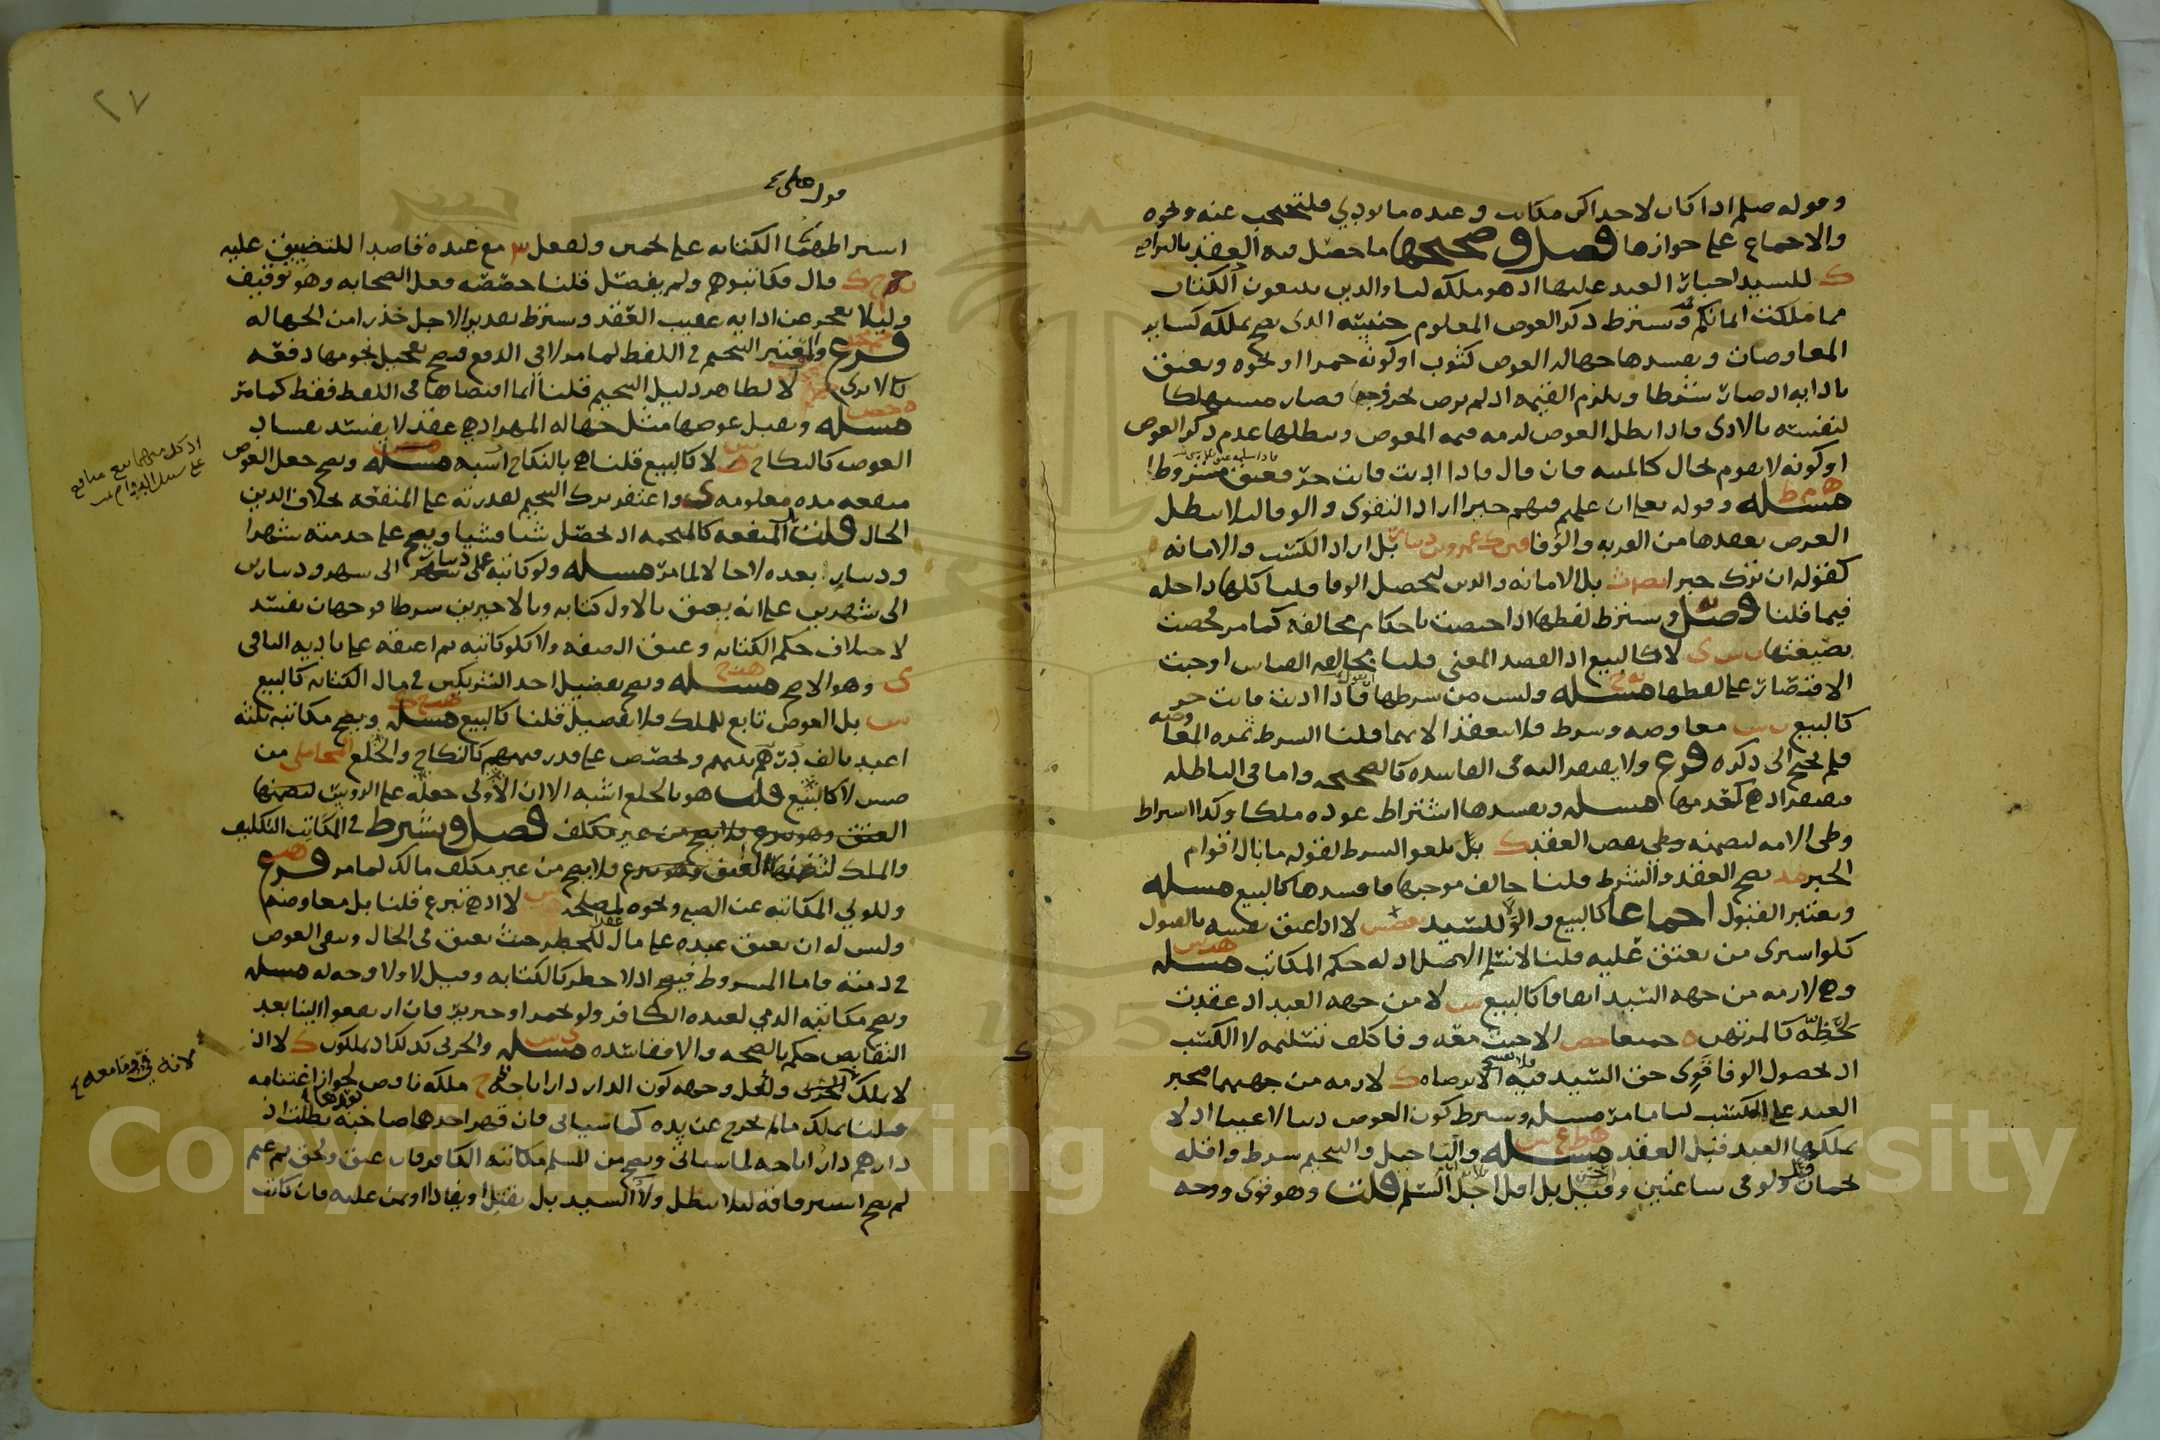 وقوله صلم اذا كان لاحداكن مكاتب وعنده ما يودي فلتحتجب عنه ونحوه
والاجماع على جوازها فصل وصحيحها ما حصل فيه العقد بالتراضي
ك للسيد اجبار العبد عليها اذ هو ملكه لنا والذين يبتغون الكتاب
مما ملكت ايمانكم ويشترط ذكر العوض المعلوم جنسه الذي يصح تملكه كسائر
المعاوضات ويفسدها جهالة العوض كثوب او كونه خمرا او نحوه ويعتق
بادائه اذ صار شرطا ويلزم القيمة اذ لم يرض بخروجه فصار مستهلكا
لنفسه بالادى واذا بطل العوض لزمه قيمة المعوض ويبطلها عدم ذكر العوض
او كونه لا يقوم بحال كالميتة فان قال فاذا اديت فانت حر فعتق مشروط
مسله وقوله تعالى ان علمتم فيهم خيرا اراد التقوى والوفا لئلا يبطل
الغرض بعقدها من القربة والوفا عمرو بن دينار بل اراد الكسب والامانة
كقوله ان ترك خيرا بل الامانة والدين لتحصل الوفا قلنا كلها داخلة
فيما قلنا فصل ويشترط لفظها اذا اختصت باحكام مخالفة كما مر فخصت
بصيغتها لا كالبيع اذ القصد المعنى قلنا مخالفة القياس اوجبت
الاقتصار على لفظها مسله وليس من شرطها فاذا اديت فانت حر
كالبيع معاوضة وشرط فلا ينعقد الا بهما قلنا الشرط ثمرة المعاوضة
فلم يحتج الى ذكره فرع ولا يفتقر اليه في الفاسدة كالصحيحة واما في الباطلة
فيفتقر اذ هي كعدمها مسله ويفسدها اشتراط عوده ملكا وكذا اشتراط
وطي الامة لتضمنه وطي بعض العقد ك بل يلغو الشرط لقوله ما بال اقوام
الخبر يصح العقد والشرط قلنا خالف موجبها فافسدها كالبيع مسله
ويعتبر القبول اجماعا كالبيع والولا للسيد لا اذ اعتق نفسه بالقبول
كلو اشترى من يعتق عليه قلنا لا نسلم الاصل اذ له حكم المكاتب مسله
وهي لازمة من جهة السيد اتفاقا كالبيع لا من جهة العبد اذ عقدت
لحظه كالمرتهن جميعا الا حيث معه وفا كلف تسليمه لا الكسب
اذ بحصول الوفا قوي حق السيد فيه فلا تفسخ الا برضاه لازمة من جهتهما فيجبر
العبد على الكسب لنا ما مر مسله وشرط كون العوض دينا لا عينا اذ لا
يملكها العبد قبل العقد مسله والتاجيل والتنجيم شرط واقله
نجمان ولو في ساعتين وقيل بل اقل اجل السلم قلت وهو قوي ووجه
٢٧
قول علي ع
اشتراطهما الكتابة على نجمين ولفعل مع عبده قاصدا للتضييق عليه
قال فكاتبوهم ولم يفصل قلنا خصصه فعل الصحابة وهو توقيف
ولئلا يعجز عن ادائه عقيب العقد ويشترط تقدير الاجل حذرا من الجهالة
فرع والمعتبر التنجيم في اللفظ لما مر لا في الدفع فيصح تعجيل نجومها دفعة
كالابرى لا لظاهر دليل التنجيم قلنا انما اقتضاها في اللفظ فقط كما مر
مسله ويقبل عوضها مثل جهالة المهر اذ هي عقد لا يفسد بفساد
العوض كالنكاح لا كالبيع قلنا هي بالنكاح اشبه مسله ويصح جعل العوض
منفعة مدة معلومة واغتفر ترك التنجيم لقدرته على المنفعة بخلاف الدين
الحال قلت المنفعة كالمنجمة اذ تحصل شيا فشيا ويصح على خدمته شهرا
ودينار بعده لا حالا لما مر مسله ولو كاتبه على دينار الى شهر ودينارين
الى شهرين على انه يعتق بالاول كتابة وبالاخيرين شرطا فوجهان يفسد
لاختلاف حكم الكتابة وعتق الصفة ولا كلو كاتبه ثم اعتقه على تادية الباقي
ى وهو الاصح مسله ويصح تفضيل احد الشريكين في مال الكتابة كالبيع
بل العوض تابع للملك فلا تفضيل قلنا كالبيع مسله ويصح مكاتبة ثلثة
اعبد بالف درهم بينهم وتحصص على قدر قيمهم كالنكاح والخلع المحاملي من
صس لا كالبيع قلنا هو بالخلع اشبه الا ان الاولى حمله على الرووس لتضمنها
العتق وهو تبرع فلا يصح من غير مكلف فصل ويشترط في المكاتب التكليف
والملك لتضمنها العتق وهو تبرع فلا يصح من غير مكلف مالك لما مر فرع
وللولي المكاتبة عن الصبي ونحوه لمصلحة لا اذ هي تبرع قلنا بل معاوضة
وليس له ان يعتق عبده على مال عقدا للخطر حيث يعتق في الحال ويبقى العوض
في ذمته فاما المشروط فيصح اذ لا خطر كالكتابة وقيل لا ولا وجه له مسله
ويصح مكاتبة الذمي لعبده الكافر ولو بخمر او خنزير فان ارتفعوا الينا بعد
التقابض حكم بالصحة والا ففاسدة مسله والحربي كذلك اذ يملكون ك لا اذ
لا يملك الحربي ولعل وجهه كون الدار دار اباحة ح ملكه ناقص لجواز اغتنامه
قلنا يملك ما لم يخرج عن يده كما سياتي فان قهر احدهما صاحبه بعدها بطلت اذ
دارهم دار اباحة لما سياتي ويصح من المسلم مكاتبة الكافر فان عتق ولحق بهم عم
لم يصح استرقاقه لئلا يبطل ولا السيد بل يقتل او يفادا او يمن عليه فان كانت
اذ كل منهما بيع منافع
على سبيل الدوام
لانه في وقامعه ع
Copyright © King Saud University
1957